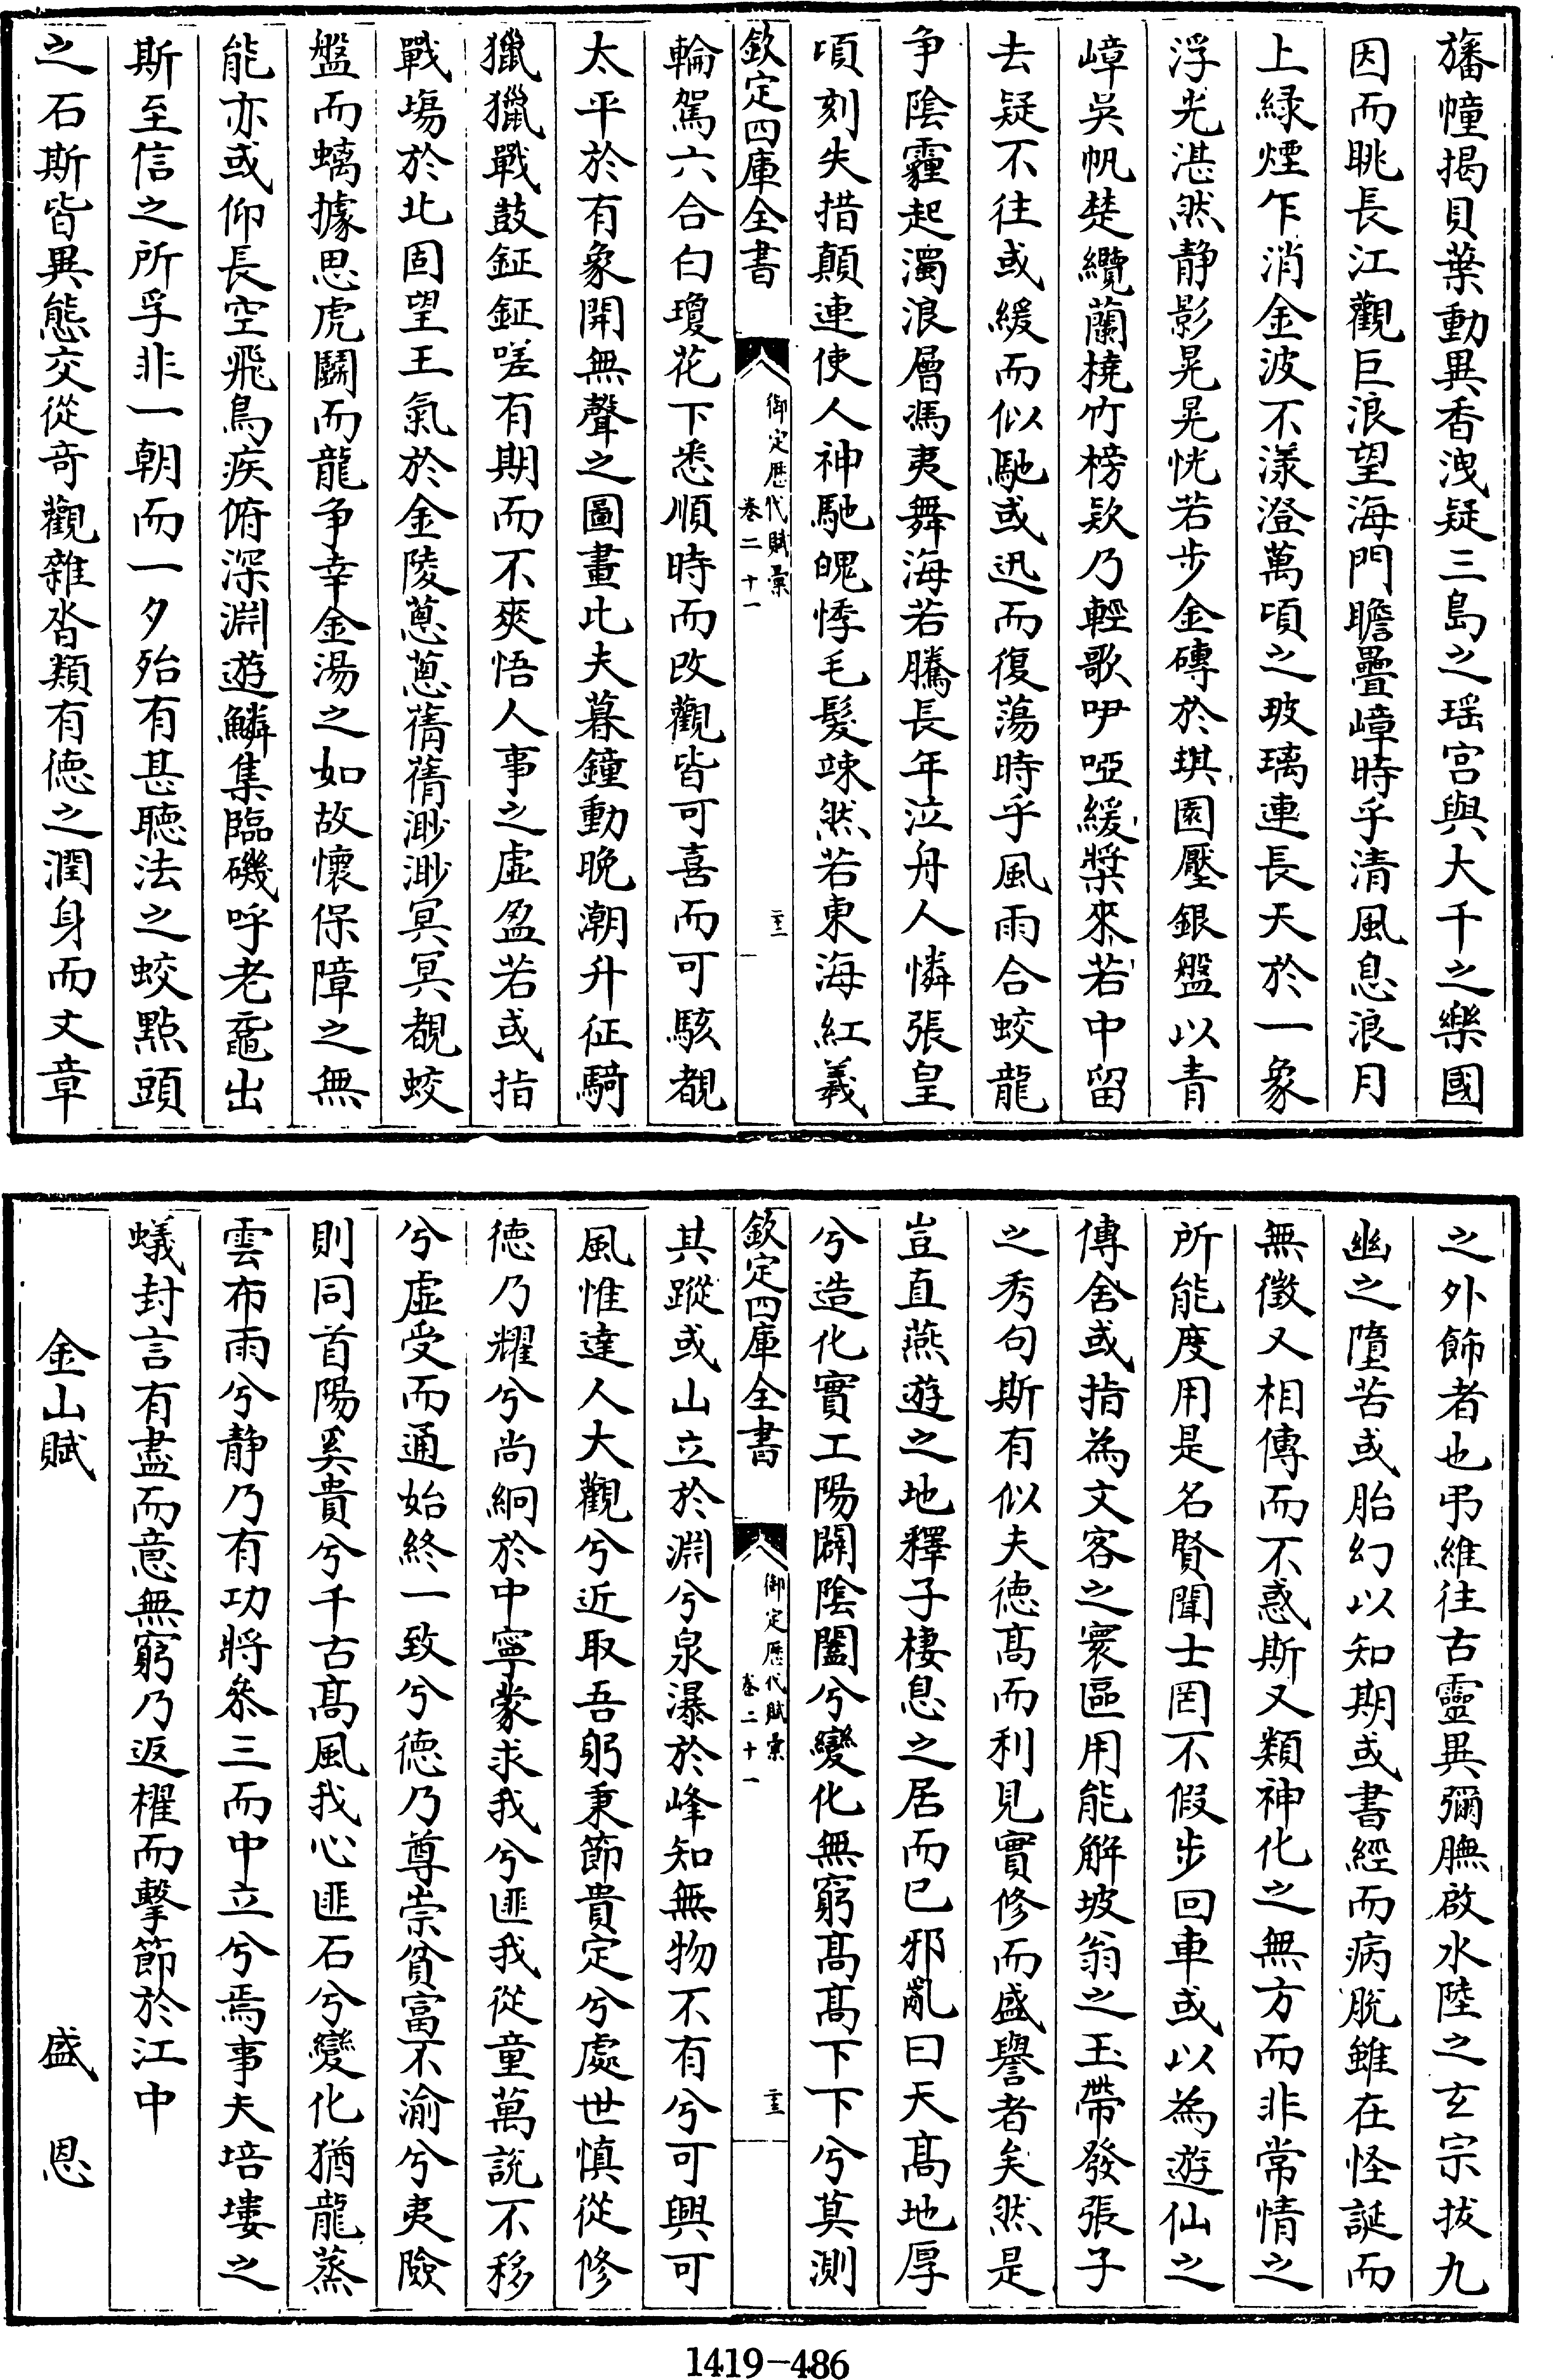 旛幢揭貝葉動異香洩疑三島之瑶宫與大千之樂國
因而眺長江觀巨浪望海門瞻疊嶂時乎清風息浪月
上緑煙乍消金波不漾澄萬頃之玻璃連長天於一象
浮光湛然静影晃晃恍若步金磚於琪園壓銀盤以青
嶂吳帆楚纜蘭橈竹榜欵乃輕歌咿啞緩槳來若中留
去疑不往或緩而似馳或迅而復蕩時乎風雨合蛟龍
争陰霾起濁浪層馮夷舞海若騰長年泣舟人憐張皇
頃刻失措顛連使人神馳魄悸毛髮竦然若東海紅羲
欽定四庫全書
御定歴代賦彙
卷二十一
二十二
輪駕六合白瓊花下悉順時而改觀皆可喜而可駭覩
太平於有象開無聲之圖畫比夫暮鐘動晚潮升征騎
獵獵戰鼓鉦鉦嗟有期而不爽悟人事之虚盈若或指
戰塲於北固望王氣於金陵蔥蔥蒨蒨渺渺冥冥覩蛟
盤而螭據思虎鬭而龍争幸金湯之如故懷保障之無
能亦或仰長空飛鳥疾俯深淵遊鱗集臨磯呼老黿出
斯至信之所孚非一朝而一夕殆有甚聴法之蛟點頭
之石斯皆異態交從竒觀雜沓類有徳之潤身而文章
之外飾者也弔維往古靈異彌膴啟水陸之玄宗拔九
幽之墮苦或胎幻以知期或書經而病脱雖在怪誕而
無徵又相傳而不惑斯又類神化之無方而非常情之
所能度用是名賢聞士罔不假步回車或以為遊仙之
傳舍或指為文客之寰區用能解坡翁之玉帶發張子
之秀句斯有似夫徳髙而利見實修而盛譽者矣然是
豈直燕遊之地釋子棲息之居而已邪亂曰天髙地厚
兮造化實工陽闢陰闔兮變化無窮髙髙下下兮莫測
欽定四庫全書
御定歴代賦彙
卷二十一
二十三
其蹤或山立於淵兮泉瀑於峰知無物不有兮可興可
風惟達人大觀兮近取吾躬秉節貴定兮處世慎從修
徳乃耀兮尚絅於中寧蒙求我兮匪我從童萬説不移
兮虚受而通始終一致兮徳乃尊崇貧富不渝兮夷險
則同首陽奚貴兮千古髙風我心匪石兮變化猶龍蒸
雲布雨兮静乃有功將叅三而中立兮焉事夫培塿之
蟻封言有盡而意無窮乃返櫂而擊節於江中
金山賦 盛恩
1419-486